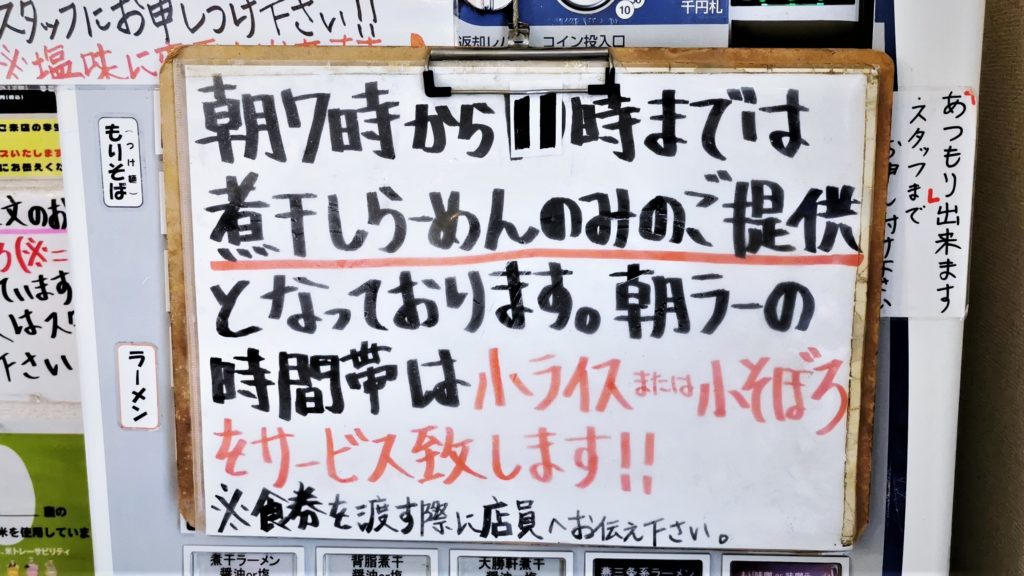 スタッフにお申しつけ下さい!!
※塩味に
返却レバ コイン投入口
千円札
10
もりそば
(つけ麺)
ラーメン
朝7時から11時までは
煮干しらーめんのみのご提供
となっております。朝ラーの
時間帯は小ライスまたは小そぼろ
をサービス致します!!
※食券を渡す際に店員へお伝え下さい。
「あつもり」出来ます
スタッフまで
お申し付け下さい
ご来店の学生
ズいたします
にお伝えくだ
文のお
ています
はスタ
下さい
米を使用していま
米トレーサビリティ
煮干ラーメン
醤油or塩
背脂煮干
醤油or塩
大勝軒煮干
醤油or塩
燕三条系ラーメン